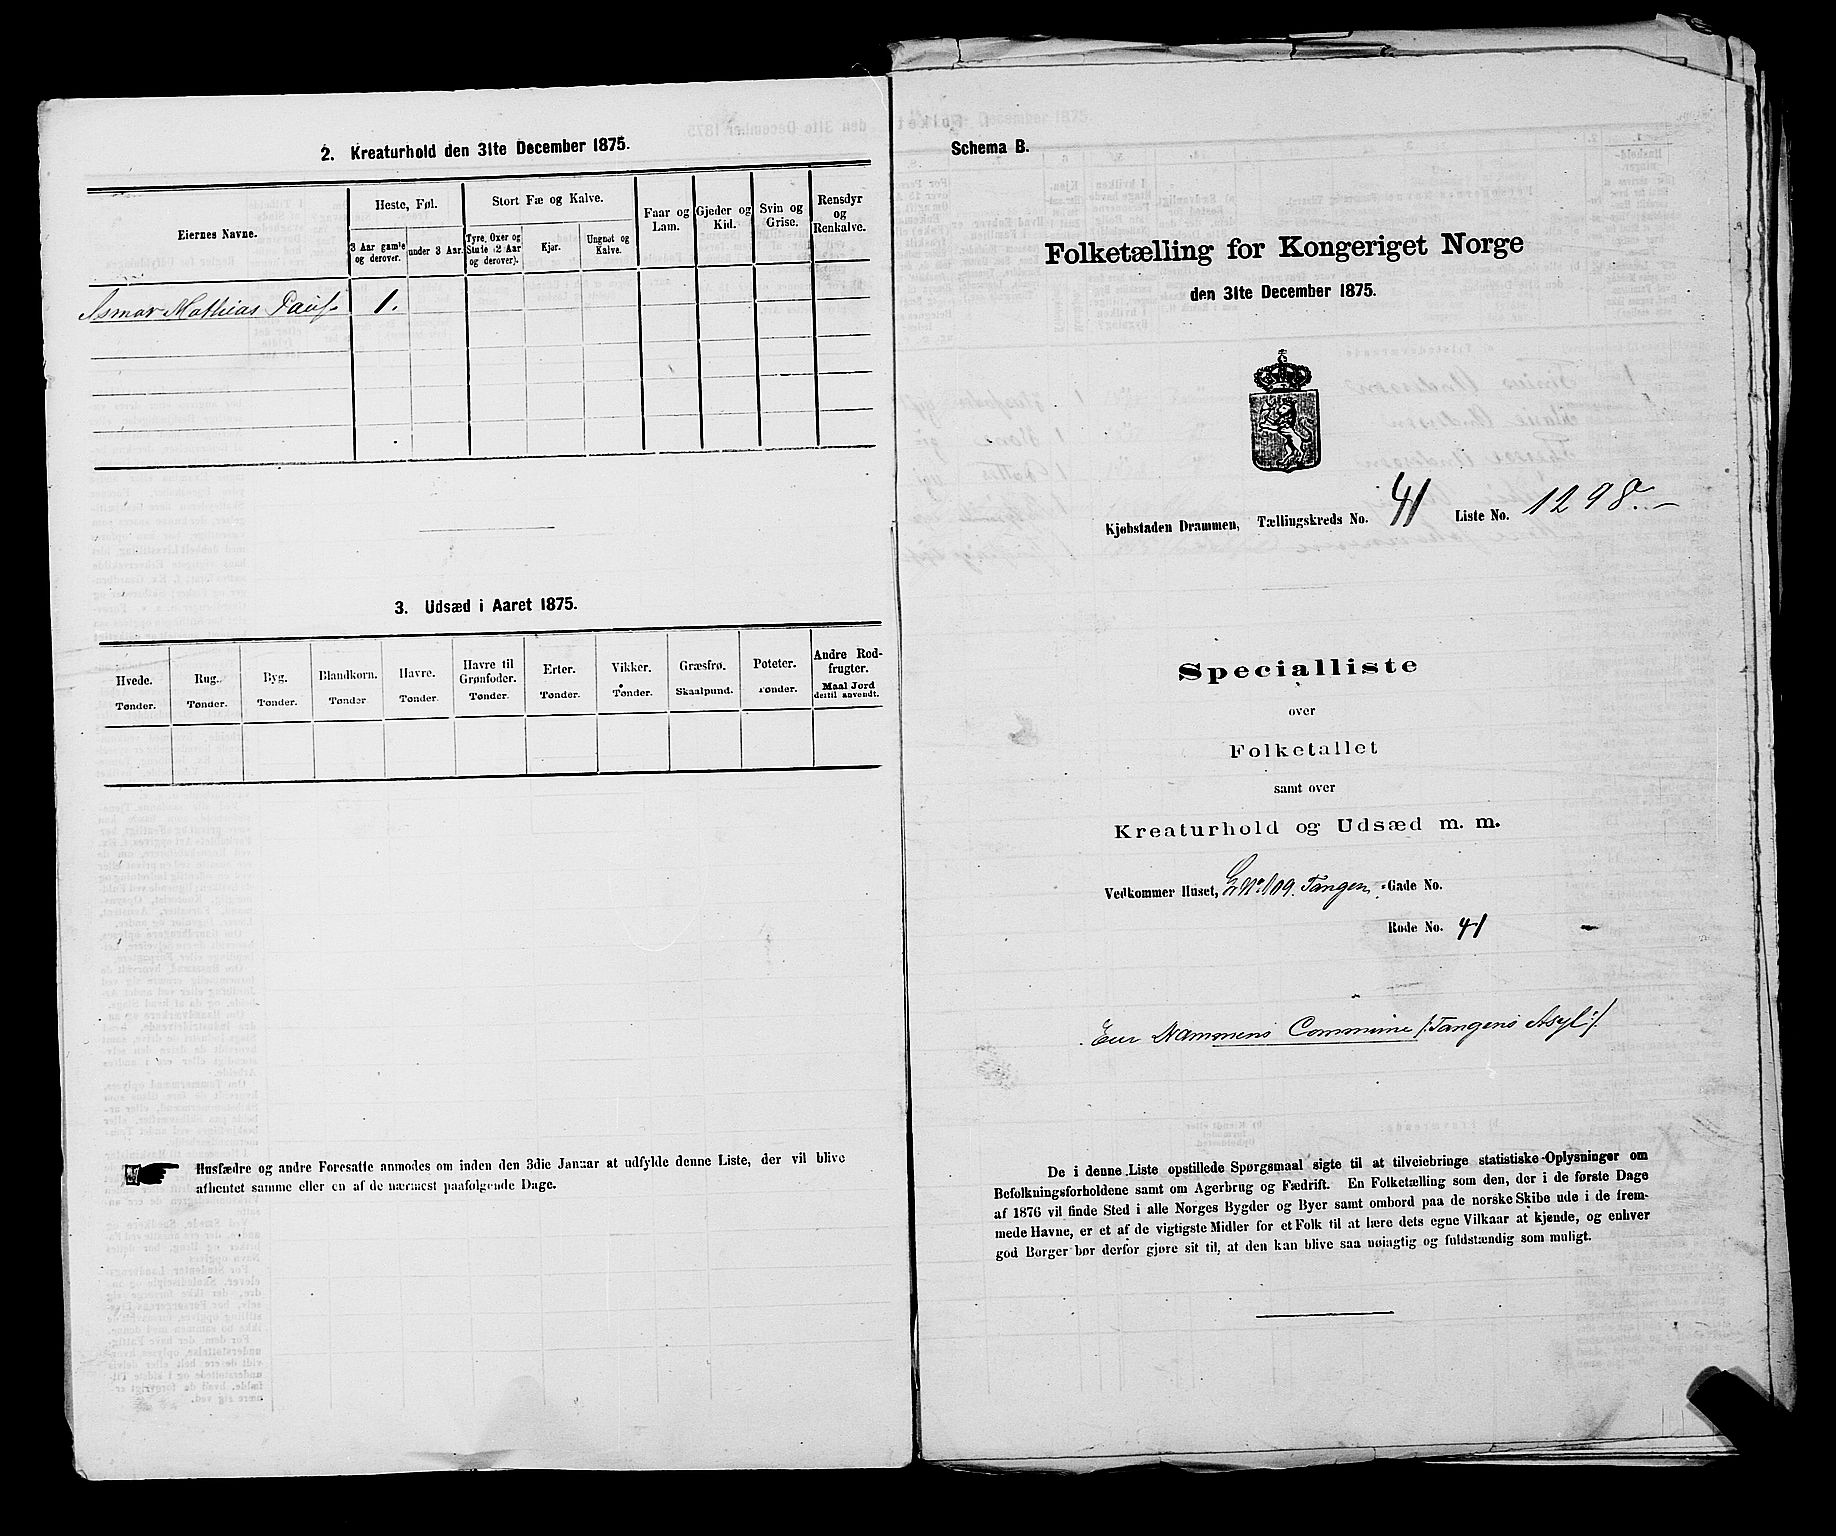 2. Kreaturhold den 31te December 1875.
Eiernes Navne.
Heste, Føl.
3 Aar gamle og derover.
under 3 Aar.
Stort Fæ og Kalve.
Tyre, Oxer og Stude (2 Aar og derover).
Kjør.
Ungnøt og Kalve.
Faar og Lam.
Gjeder og Kid.
Svin og Grise.
Rensdyr og Renkalve.
Mathias 1.
3. Udsæd i Aaret 1875.
Hvede. Tønder.
Rug. Tønder.
Byg. Tønder.
Blandkorn. Tønder
Havre. Tønder.
Havre til Grønfoder. Tønder.
Erter. Tønder.
Vikker. Tønder.
Græsfrø. Skaalpund.
Poteter. Tønder.
Andre Rodfrugter. Maal Jord dertil anvendt.
Husfædre og andre Foresatte anmodes om inden den 3die Januar at udfylde denne Liste, der vil blive
afhentet samme eller en af de nærmest paafølgende Dage.
Schema B.
Folketælling for Kongeriget Norge
den 31te December 1875.
Kjøbstaden Drammen, Tællingskreds No. 41 Liste No. 1298.
Specialliste
over
Folketallet
samt over
Kreaturhold og Udsæd m. m.
Vedkommer Huset, Tangen Gade No.
Rode No. 41
Eier Drammens Commune /: Tangens Asyl :/
De i denne Liste opstillede Spørgsmaal sigte til at tilveiebringe statistiske Oplysninger om
Befolkningsforholdene samt om Agerbrug og Fædrift. En Folketælling som den, der i de første Dage
af 1876 vil finde Sted i alle Norges Bygder og Byer samt ombord paa de norske Skibe ude i de frem-
mede Havne, er et af de vigtigste Midler for et Folk til at lære dets egne Vilkaar at kjende, og enhver
god Borger bør derfor gjøre sit til, at den kan blive saa nøiagtig og fuldstændig som muligt.